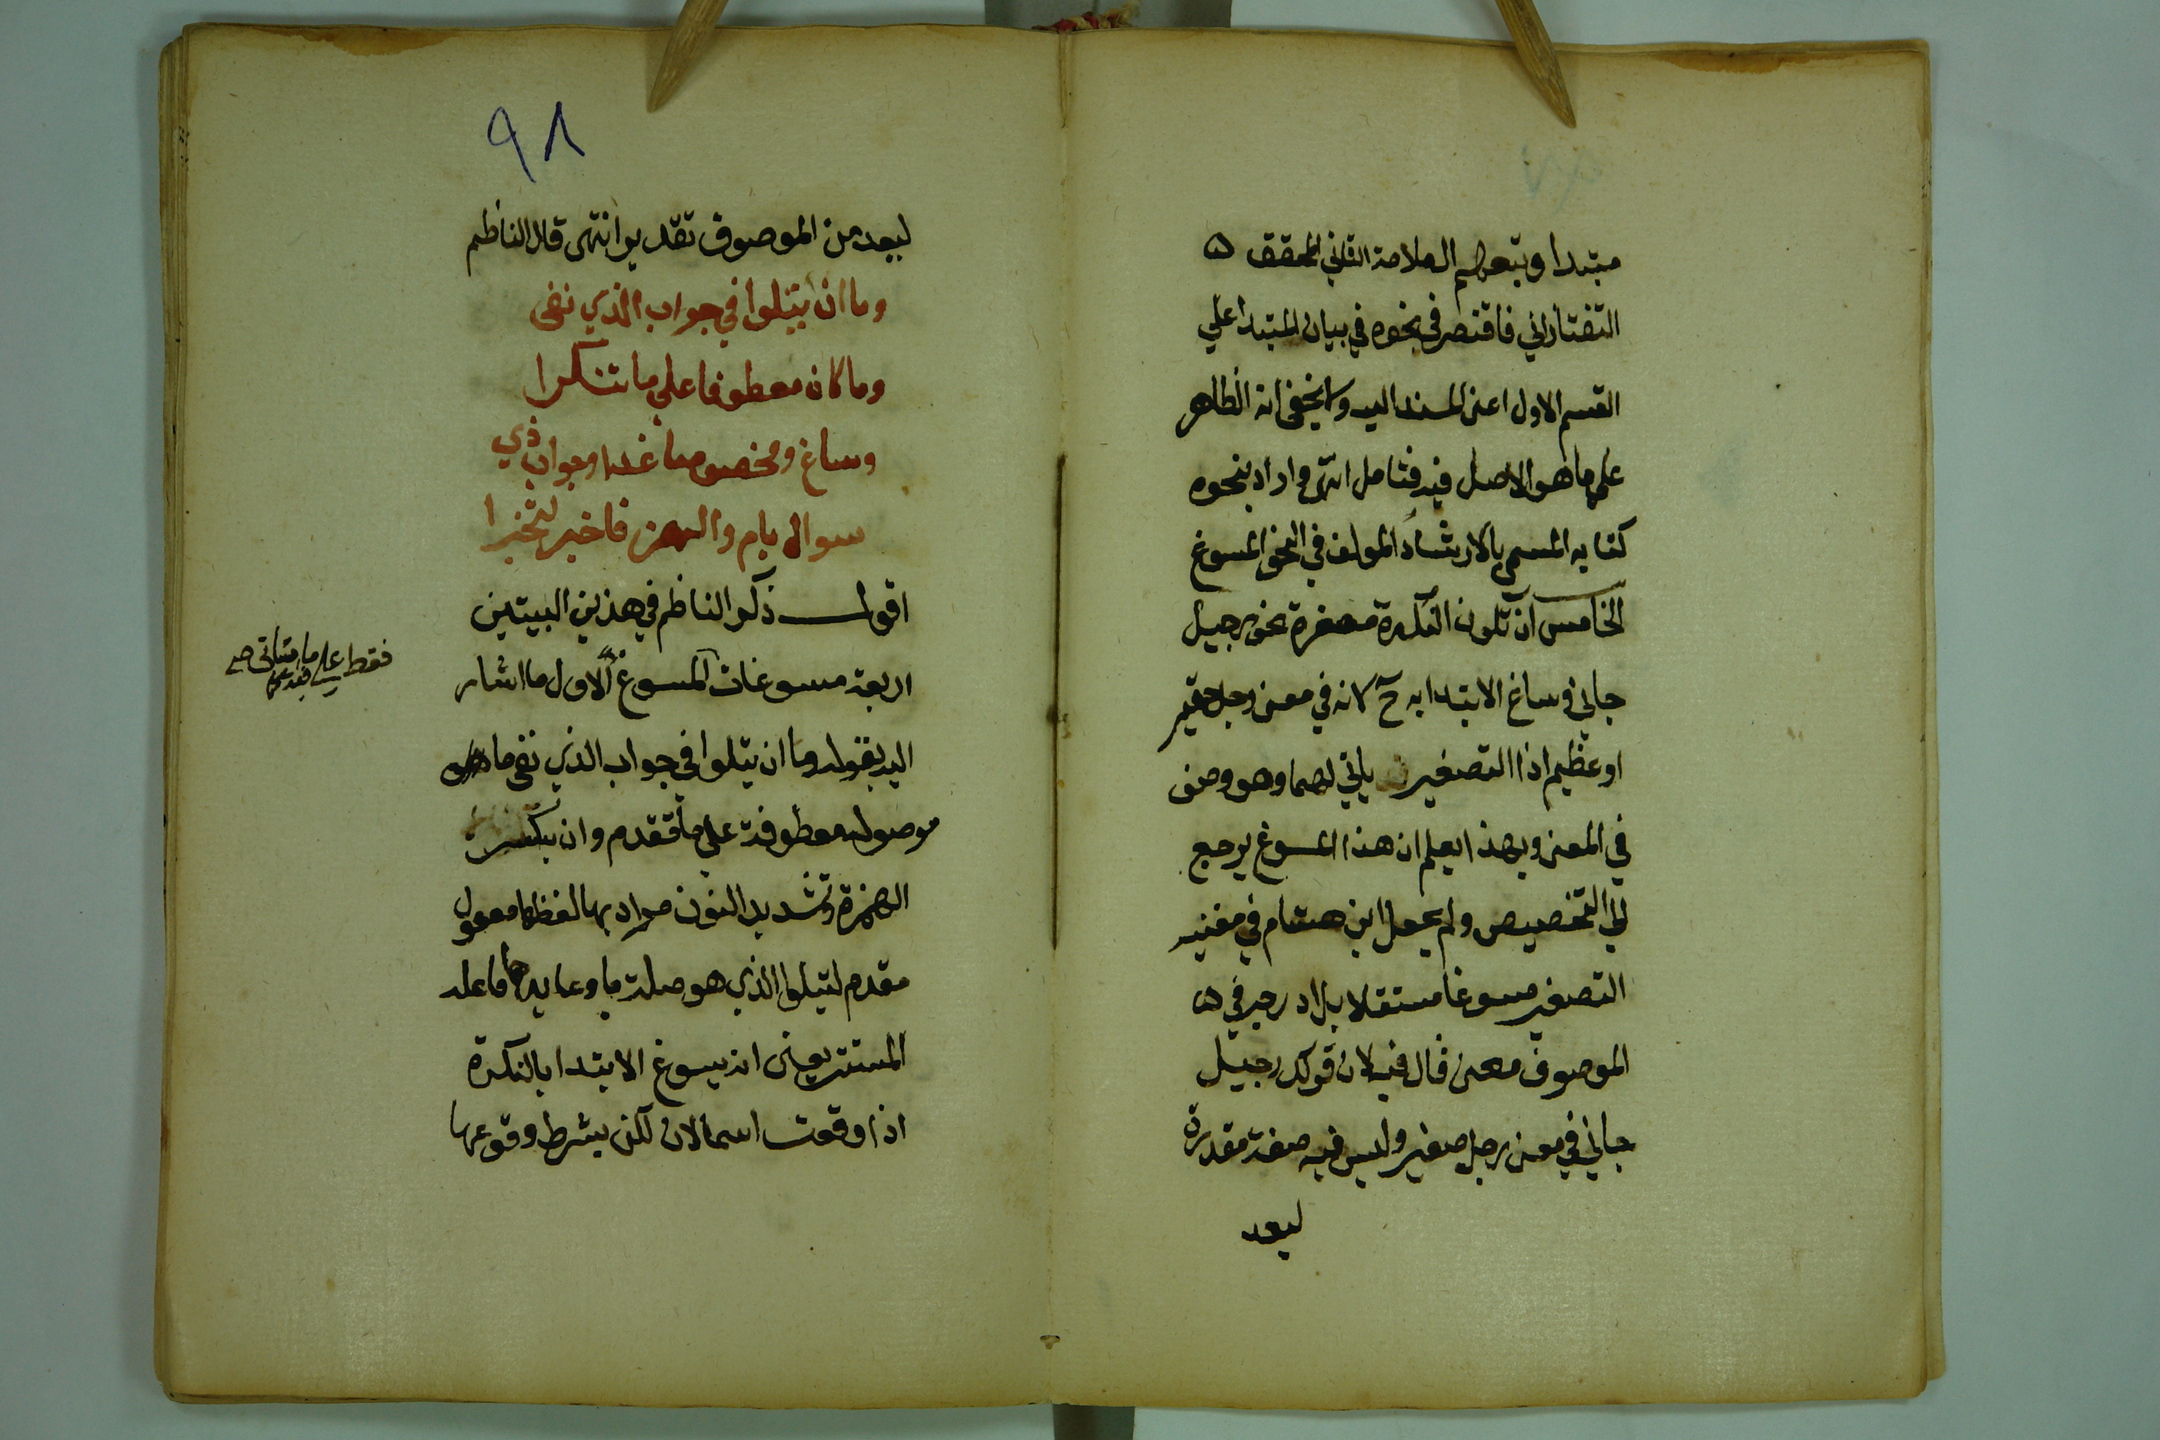 مبتدا وتبعهم العلامة الثاني المحقق ه
التفتازاني فاقتصر في نحوه في بيان المبتدا علي
القسم الاول اعني المسند اليه ولا يخفي انه الظاهر
علي ما هو الاصل فيه فتامل انتهي واراد بنحوه
كتابه المسمي بالارشاد المولف في النحو المسوغ
الخامس ان تكون النكرة مصغرة نحو رجيل
جاني وساغ الابتدا به ح لانه في معني رجل حقير
او عظيم اذا التصغير ياتي لهما وهو وصف
في المعني وبهذا يعلم ان هذا المسوغ يرجع
الي التخصيص ولم يجعل ابن هشام في مغنيه
التصغير مسوغا مستقلا بل ادرجه في ه
الموصوف معني قال فيه لان قولك رجيل
جاني في معني رجل صغير وليس فيه صفة مقدرة
ليعد
٩٨
ليعد من الموصوف تقديرا انتهي قال الناظم
وما ان يتلوا في جواب الذي نفي
وما كان معطوفا علي ما تنكرا
وساغ ومخصوصا غدا وجواب ذي
سوال بام والهمز فاخبر لتخبرا
اقول ذكر الناظم في هذين البيتين
اربعة مسوغات المسوغ الاول ما اشار
اليه بقوله وما ان يتلوا في جواب الذي نفي ما
موصولة معطوفة علي ما تقدم وان بكسر
الهمزة وتشديد النون مراد بها لفظها معمول
مقدم ليتلوا الذي هو صلة ما وعايدها فاعله
المستتر يعني انه يسوغ الابتدا بالنكرة
اذا وقعت اسما لان لكن بشرط وقوعها
فقط علي ما